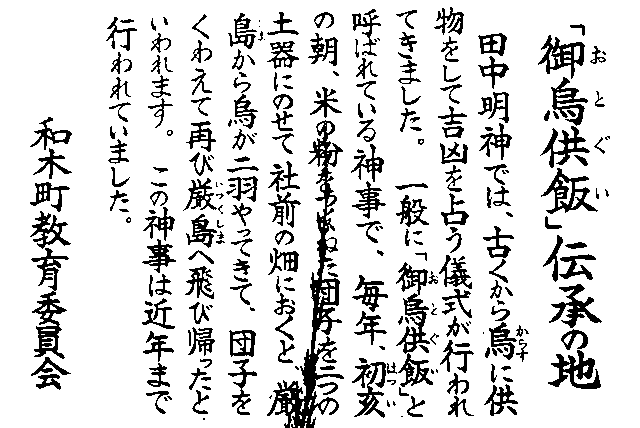 「御烏供飯」伝承の地
田中明神では、古くから烏に供
物をして吉凶を占う儀式が行われ
てきました。　一般に「御烏供飯」と
呼ばれている神事で、毎年、初亥
の朝、米の粉をつくねた団子を二つの
土器にのせて社前の畑におくと、厳
島から烏が二羽やってきて、団子を
くわえて再び厳島へ飛び帰ったと
いわれます。　この神事は近年まで
行われていました。
和木町教育委員会